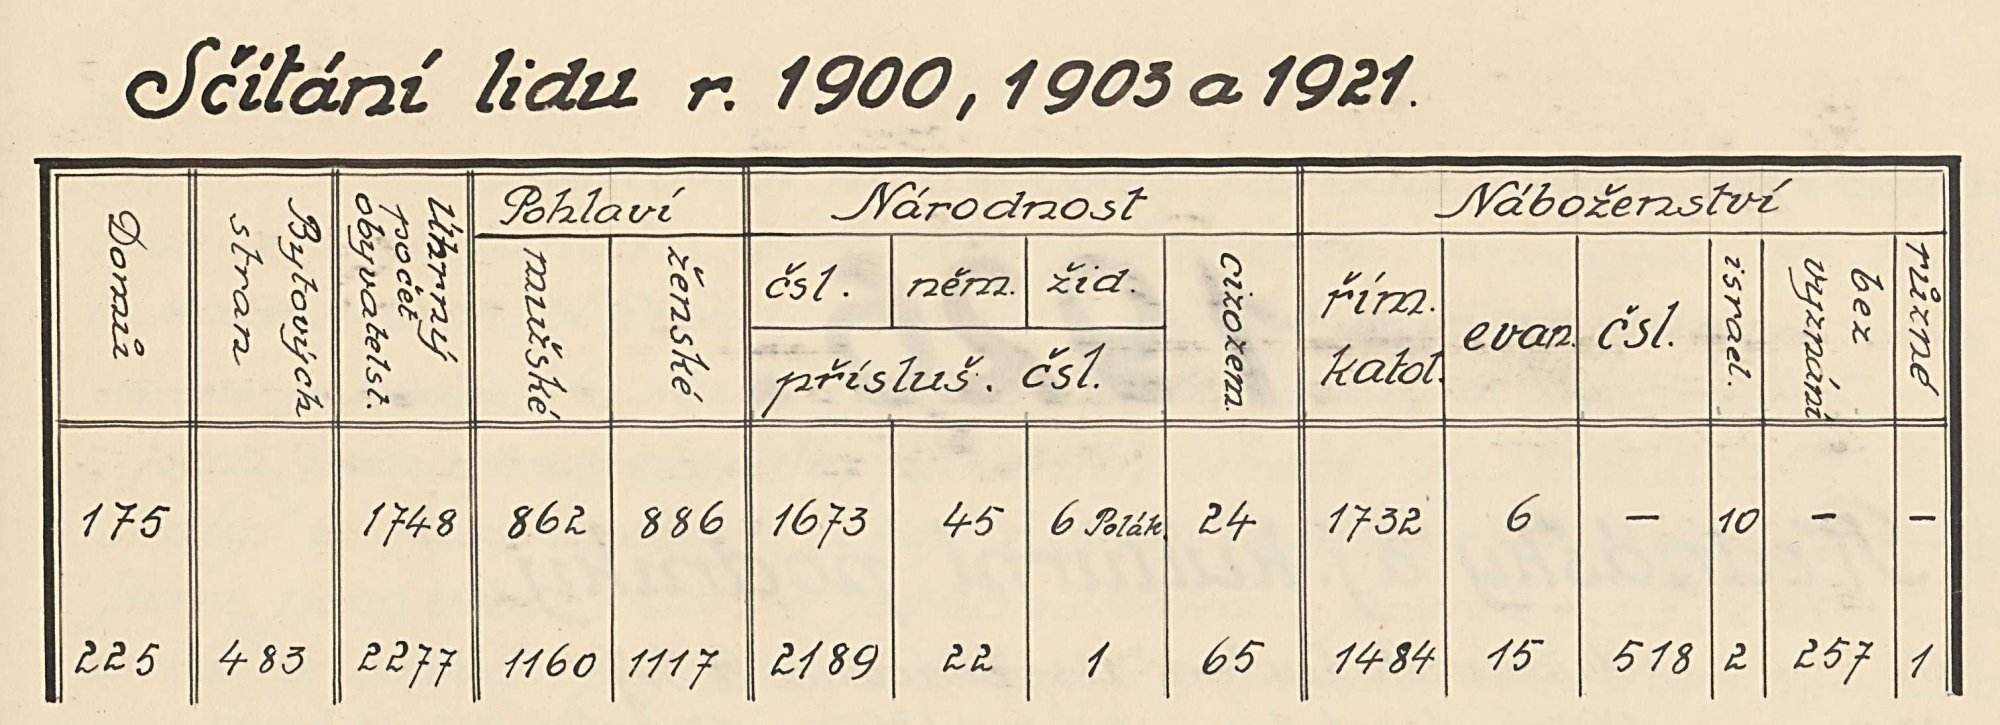 Sčítání lidu r. 1900, 1903 a 1921.
Domů
Bytových stran
Úhrnný počet obyvatelst.
Pohlaví
mužské
ženské
Národnost
čsl.
něm.
žid.
přísluš. čsl.
cizozem.
Náboženství
řím. katol.
evan.
čsl.
israel.
bez vyznání
různé
175 1748 862 886 1673 45 6 Polák. 24 1732 6 — 10 — —
225 483 2277 1160 1117 2189 22 1 65 1484 15 518 2 257 1